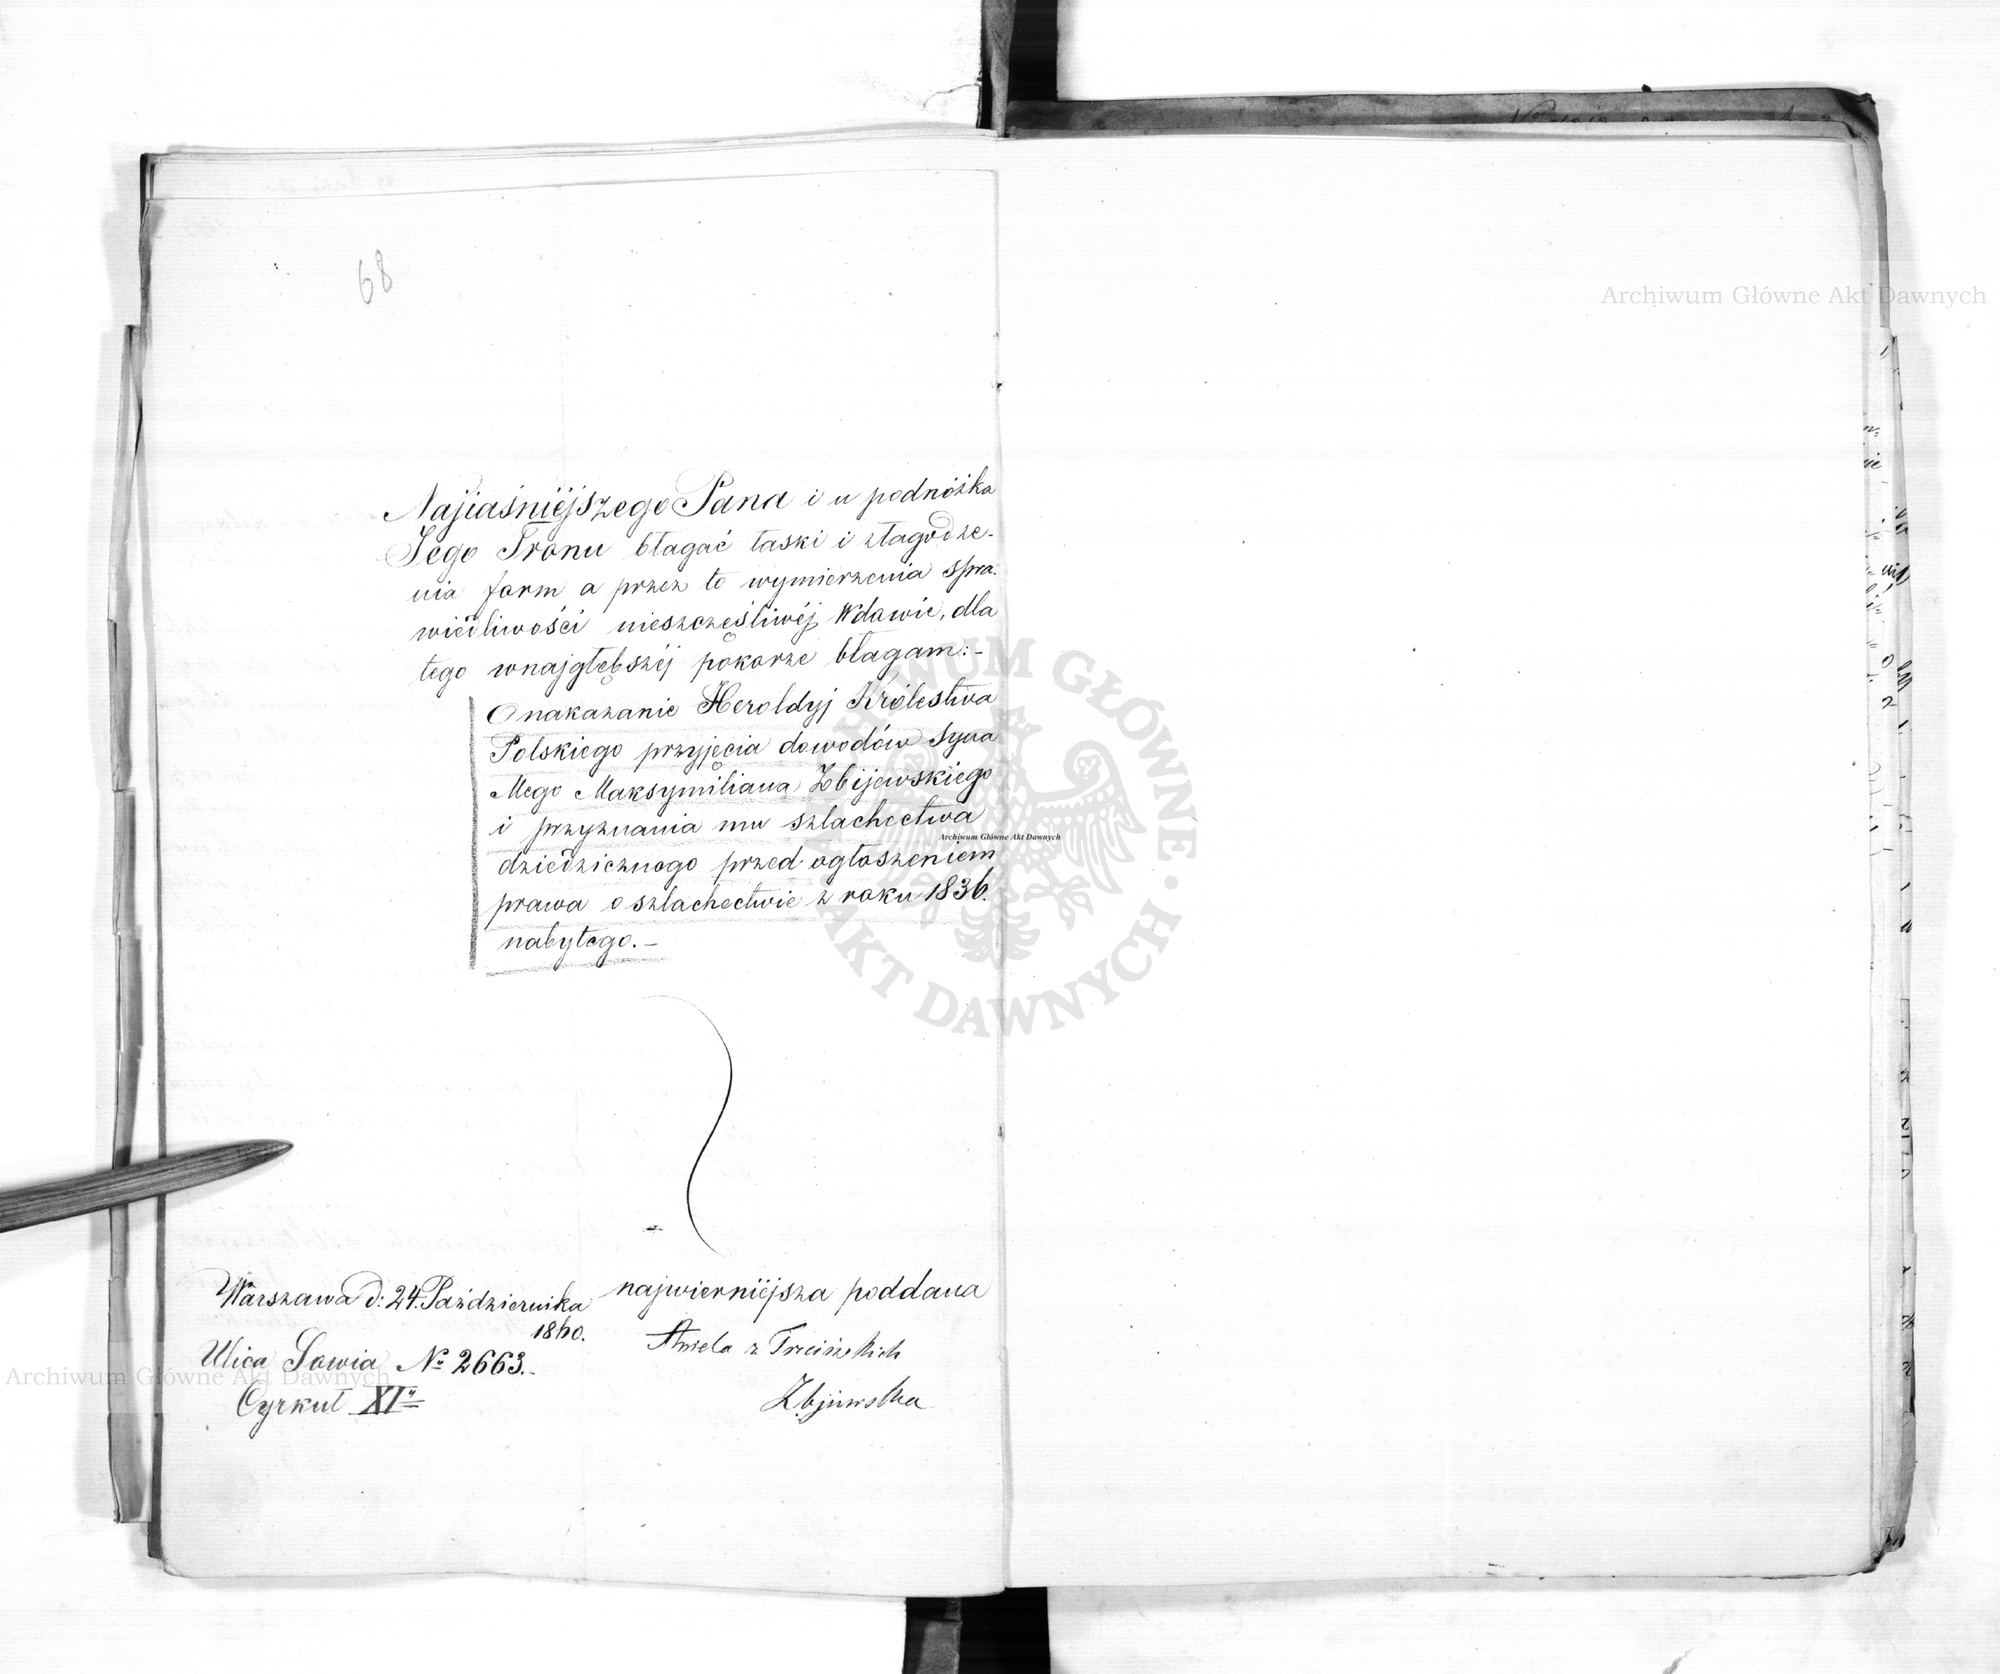 68
Najjaśniéjszego Pana i u podnóżka
Jego Tronu błagać łaski i złagodze-
nia form a przez to wymierzenia spra-
wiedliwości nieszczęśliwéj Wdowie, dla
tego wnajgłębszéj pokorze błagam:-
O nakazanie Heroldyj Królestwa
Polskiego przyjęcia dowodów Syna
Mego Maksymiliana Zbijewskiego
i przyznania mu szlachectwa
dziedzicznego przed ogłoszeniem
prawa o szlachectwie z roku 1836.
nabytego.-
Warszawa d: 24. Października
1860.
Ulica Sowia No 2663.-
Cyrkuł XI
najwierniéjsza poddana
Aniela z Trcińskich
Zbijewska
Archiwum Główne Akt Dawnych
Archiwum Główne Akt Dawnych
Archiwum Główne Akt Dawnych
ARCHIWUM GŁÓWNE AKT DAWNYCH